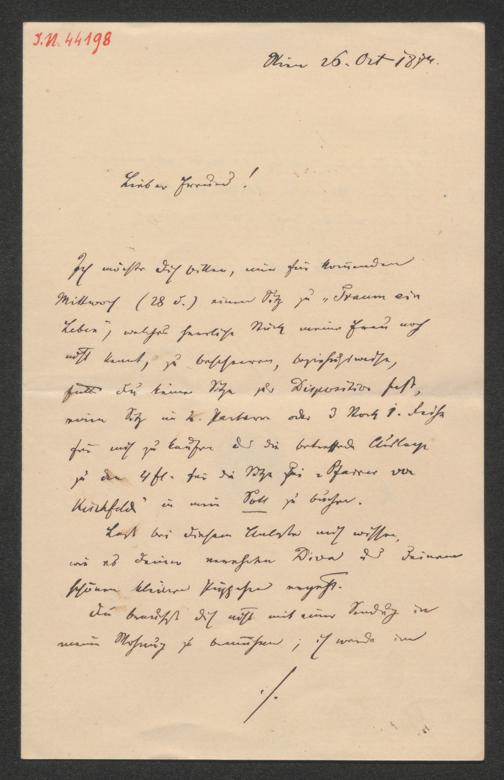 I.N. 44198
Wien 26. Oct 1874.
Lieber Freund!
Ich möchte Dich bitten, mir für kommenden
Mittwoch (28 d.) einen Sitz zu „Traum ein
Leben", welches herrliche Stück meine Frau noch
nicht kennt, zu bescheeren, beziehungsweise,
falls Du keine Sitze zur Disposition hast,
einen Sitz im 2. Parterre oder 3 Stock 1. Reihe
für mich zu kaufen und die betreffende Auslage
zu den 4 fl. für die Sitze bei „Pfarrer von
Kirchfeld" in mein Soll zu buchen.
Laß bei diesem Anlaße mich wissen,
wie es Deiner verehrten Diva und Deinem
schönen kleinen Püppchen ergeht.
Du brauchst Dich nicht mit einer Sendung in
meine Wohnung zu bemühen; ich werde im